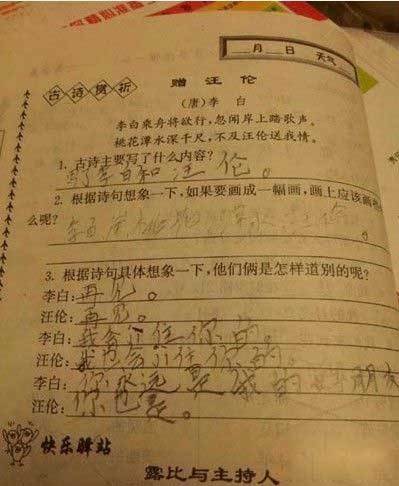 月 日 天气
古诗赏析
赠汪伦
(唐)李 白
李白乘舟将欲行,忽闻岸上踏歌声。
桃花潭水深千尺,不及汪伦送我情。
1. 古诗主要写了什么内容?
写了李白和汪伦。
2. 根据诗句想象一下,如果要画成一幅画,画上应该画
么呢?
3. 根据诗句具体想象一下,他们俩是怎样道别的呢?
李白:再见。
汪伦:再见。
李白:我会记住你的
汪伦:我也会记住你的。
李白:你永远是我的 朋友
汪伦:你也是。
快乐驿站
露比与主持人